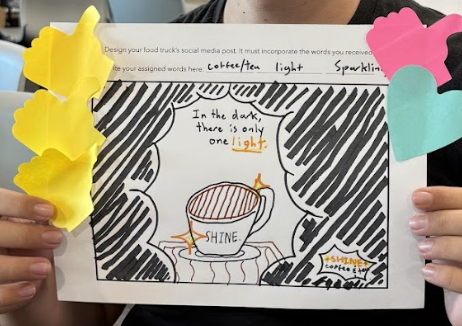 Design your food truck's social media post. It must incorporate the words you received
your assigned words here: coffee/tea light Sparklin
In the dark,
there is only
one light.
SHINE.
SHINE
coffee & tea